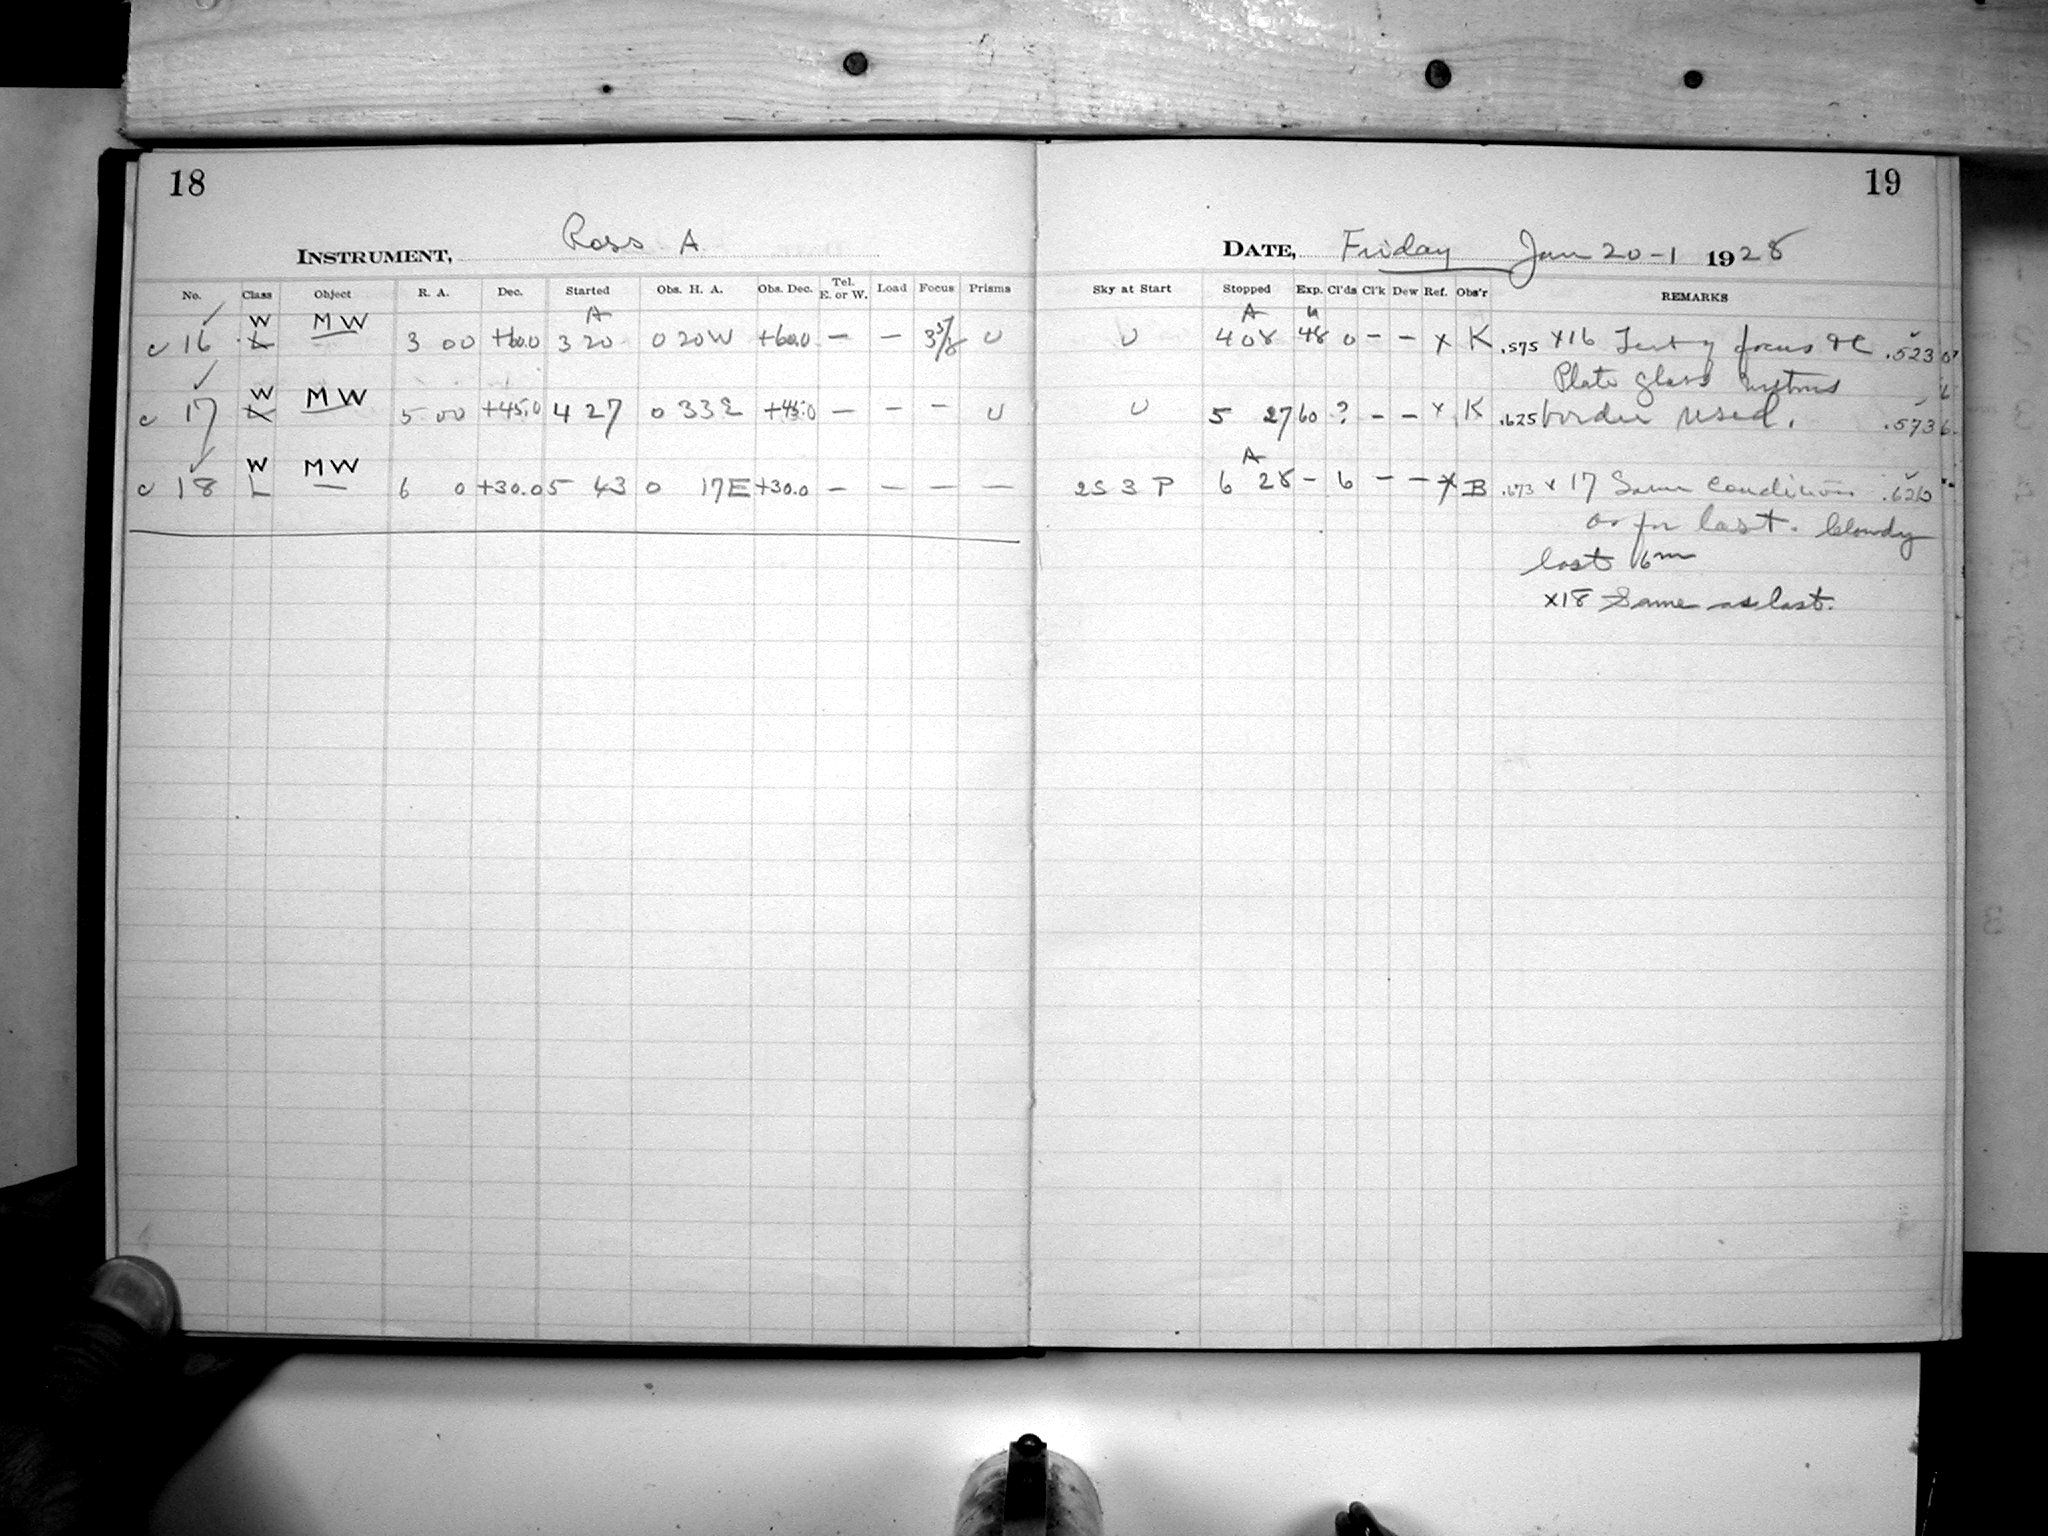 18
19
INSTRUMENT, Ross A
DATE, Friday Jan 20-1 1928
No. Class Object R. A. Dec. Started Obs. H. A. Obs. Dec. Tel. E. or W. Load Focus Prisms
Sky at Start Stopped Exp. Cl'ds Cl'k Dew Ref. Obs'r REMARKS
c 16 W L MW 3 00 +60.0 A 3 20 0 20 W +60.0 — — U
U A 4 08 48 0 — — x K .575 x16 Test of focus &c .523
Plate glass
c 17 W L MW 5 00 +45.0 4 27 0 33 E +45.0 — — — U
U 5 27 60 ? — — x K .625 border used. .573
c 18 W L MW 6 0 +30.0 5 43 0 17 E +30.0 — — — —
2S 3 P A 6 28 — 6 — — x B .673 x 17 Same conditions
as for last. Cloudy
last 6m
x18 Same as last.